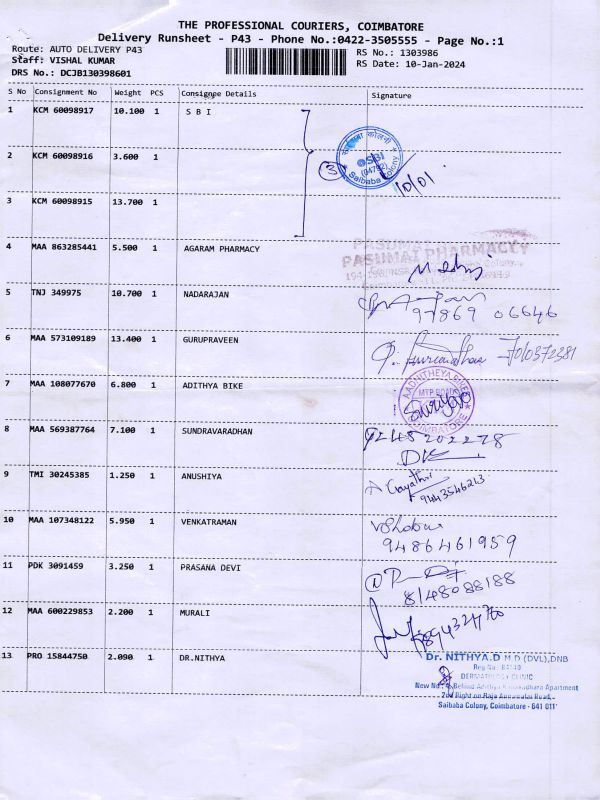 THE PROFESSIONAL COURIERS, COIMBATORE
Delivery Runsheet - P43 - Phone No.:0422-3505555 - Page No.:1
Route: AUTO DELIVERY P43
RS No.: 1303986
Staff: VISHAL KUMAR
RS Date: 10-Jan-2024
DRS No.: DCJB130398601
S No Consignment No Weight PCS Consignee Details Signature
1 KCM 60098917 10.100 1 S B I
2 KCM 60098916 3.600 1
3
SBI
Saibaba Colony
10/01
3 KCM 60098915 13.700 1
4 MAA 863285441 5.500 1 AGARAM PHARMACY
PASUMAI PHARMACY
5 TNJ 349975 10.700 1 NADARAJAN
97869 06646
6 MAA 573109189 13.400 1 GURUPRAVEEN
7 MAA 108077670 6.800 1 ADITHYA BIKE
COIMBATORE
8 MAA 569387764 7.100 1 SUNDRAVARADHAN
9 TMI 30245385 1.250 1 ANUSHIYA
A Gayathri
9443546213
10 MAA 107348122 5.950 1 VENKATRAMAN
9486461959
11 PDK 3091459 3.250 1 PRASANA DEVI
8148088188
12 MAA 600229853 2.200 1 MURALI
13 PRO 15844750 2.090 1 DR.NITHYA
Dr. NITHYA.D M.D (DVL),DNB
DERMATOLOGY CLINIC
Saibaba Colony, Coimbatore - 641 011